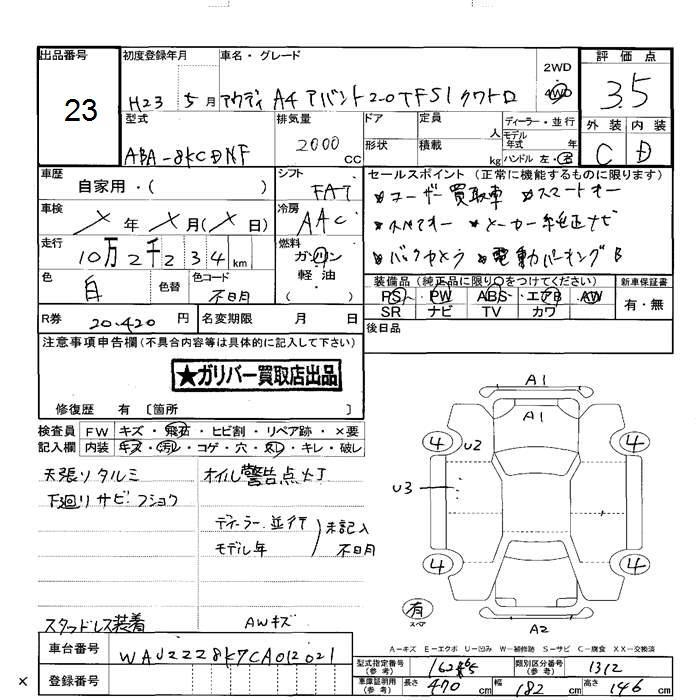 出品番号
23
初度登録年月
H23 5月
車名・グレード
アウディ A4 アバント 2.0TFSI クワトロ
2WD
4WD
評価点
3.5
型式
ABA-8KCDNF
排気量
2000 CC
ドア
形状
定員 人
積載 kg
ディーラー・並行
モデル年式 年
ハンドル 左・右
外装 内装
C D
車歴
自家用・( )
シフト
FA7
セールスポイント (正常に機能するものに限ります)
★ユーザー買取車 ★スマートオー
★スペアオー ★メーカー純正ナビ
★バックカメラ ★電動パーキングB
車検
× 年 × 月( × 日)
冷房
AAC
走行
10万2千234km
燃料
ガソリン
軽油
( )
色
白
色替
色コード
不明
装備品 (純正品に限り○をつけてください)
PS PW ABS エアB AW
SR ナビ TV カワ
新車保証書
有・無
R券 20.420 円
名変期限 月 日
後日品
注意事項申告欄(不具合内容等は具体的に記入して下さい)
★ガリバー買取店出品
修復歴 有〔箇所 〕
検査員記入欄
FW キズ・飛石・ヒビ割・リペア跡・×要
内装 キズ・汚れ・コゲ・穴・ スレ・キレ・破レ
天張りタルミ
下廻りサビ・フショク
オイル警告点灯
ディーラー・並行
モデル年
未記入
不明
スタッドレス装着
AWキズ
A1
A1
4
U2
4
U3
4
4
有
スペア
A2
A-キズ E-エクボ U-凹み W-補修跡 S-サビ C-腐食 XX-交換済
車台番号
WAUZZZ8K7CA012021
登録番号
型式指定番号(参考)
類別区分番号(参考)
1312
車庫証明用(参考)
長さ 470 cm
幅 182 cm
高さ 146 cm
×